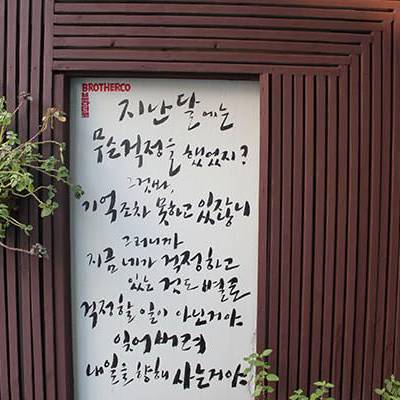 BROTHERCO
지난 달에는
무슨 걱정을 했었지?
그것봐,
기억조차 못하고 있잖니
그러니까
지금 네가 걱정하고
있는 것도 별로
걱정할 일이 아닌거야.
잊어버려
내일을 향해 사는거야.